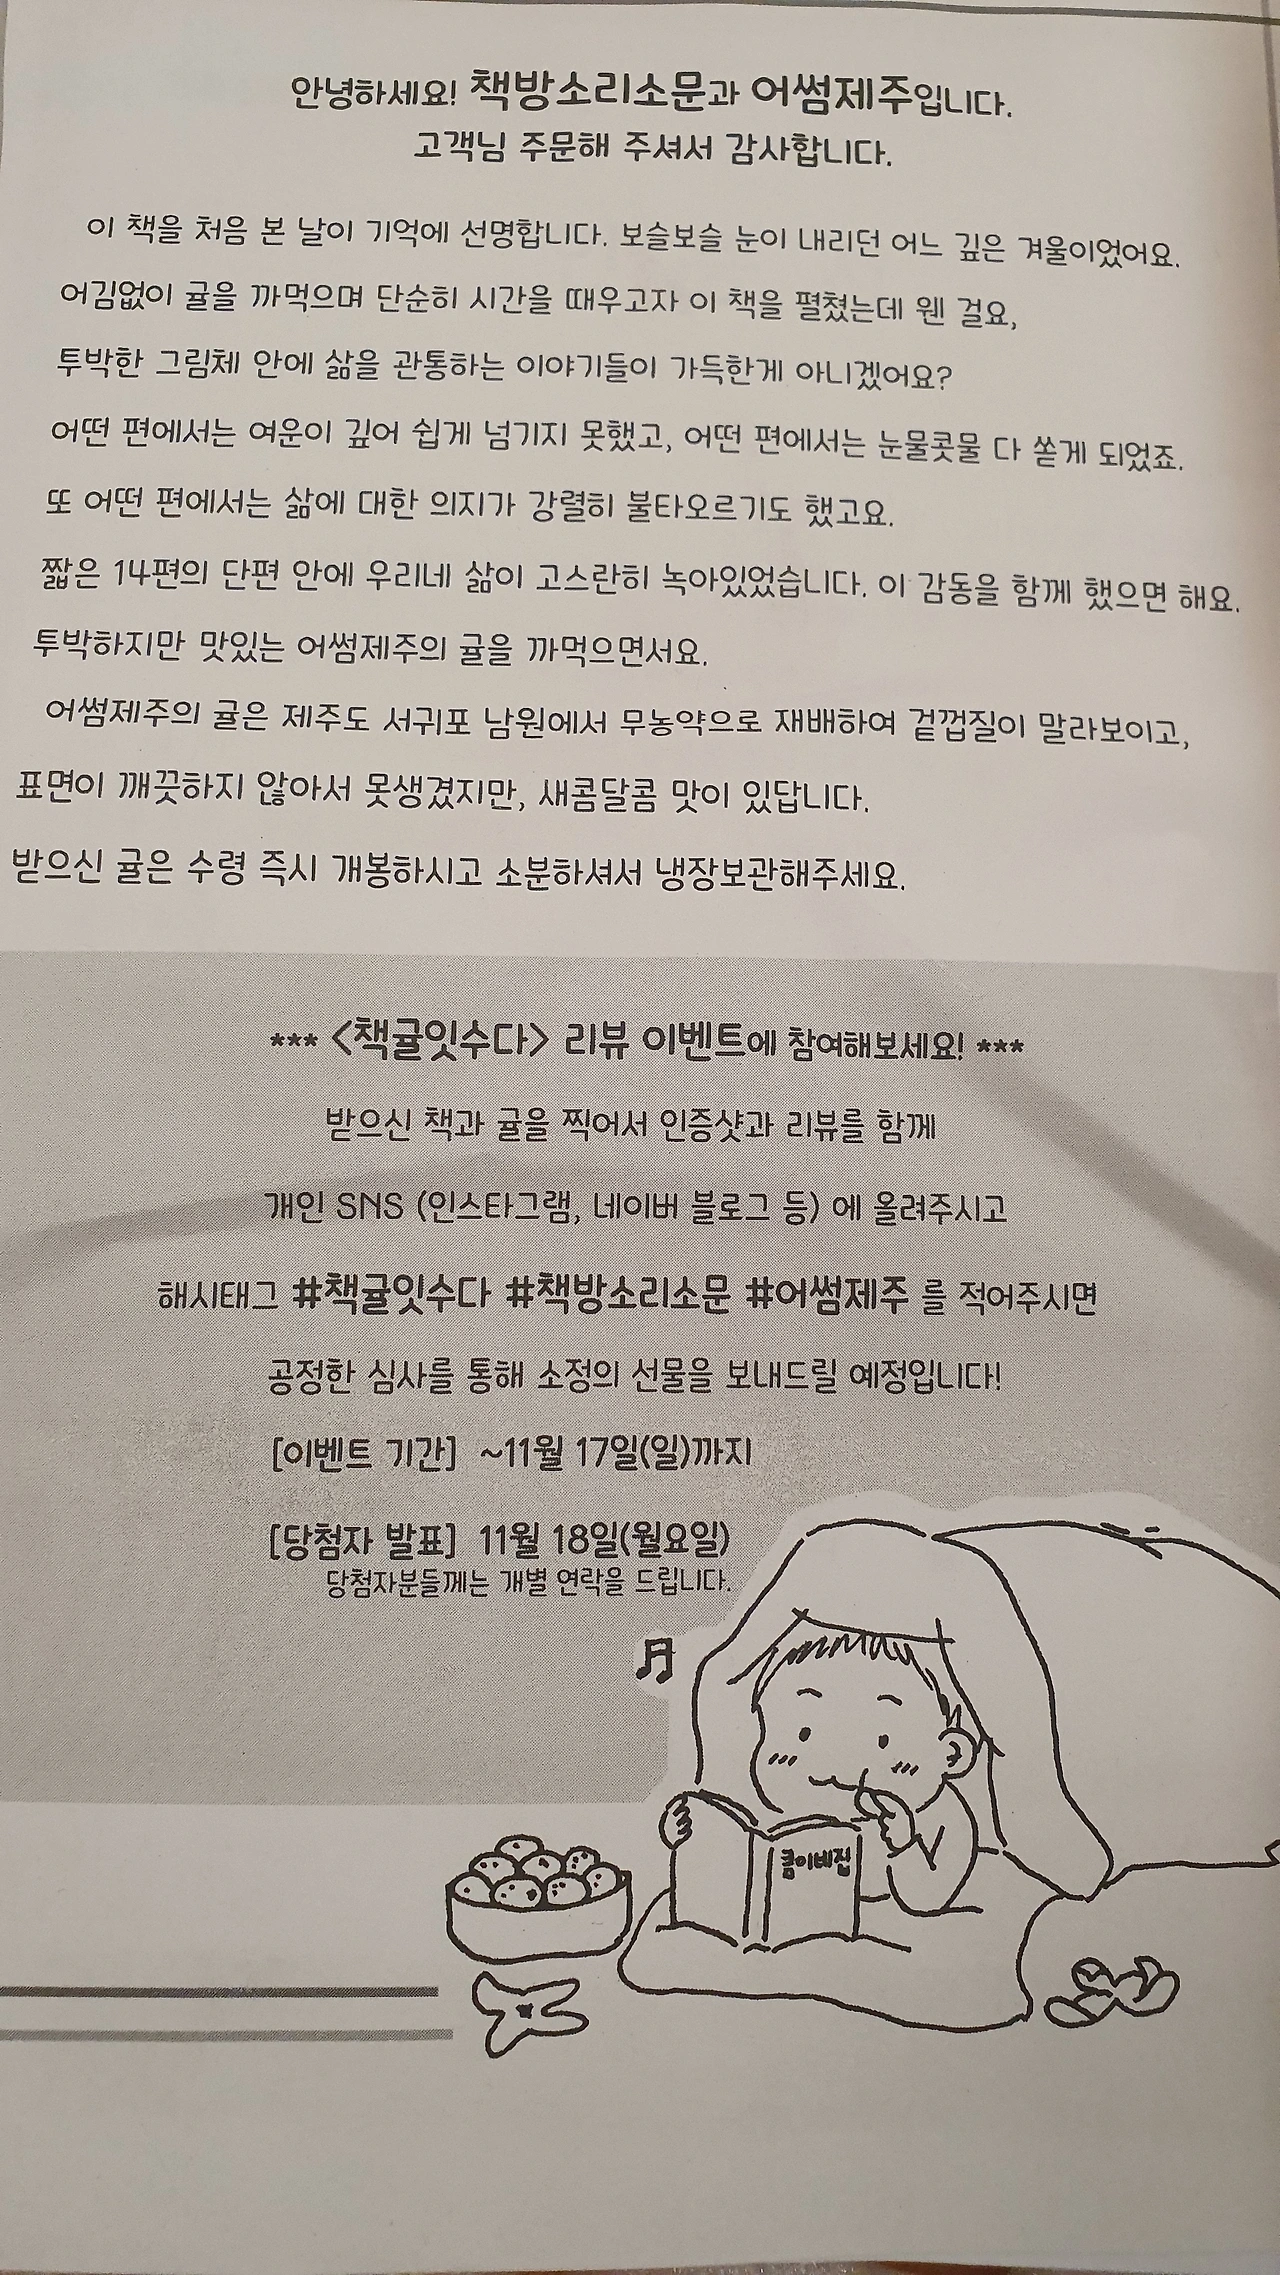 안녕하세요! 책방소리소문과 어썸제주입니다.
고객님 주문해 주셔서 감사합니다.
이 책을 처음 본 날이 기억에 선명합니다. 보슬보슬 눈이 내리던 어느 깊은 겨울이었어요.
어김없이 귤을 까먹으며 단순히 시간을 때우고자 이 책을 펼쳤는데 웬 걸요,
투박한 그림체 안에 삶을 관통하는 이야기들이 가득한게 아니겠어요?
어떤 편에서는 여운이 깊어 쉽게 넘기지 못했고, 어떤 편에서는 눈물콧물 다 쏟게 되었죠.
또 어떤 편에서는 삶에 대한 의지가 강렬히 불타오르기도 했고요.
짧은 14편의 단편 안에 우리네 삶이 고스란히 녹아있었습니다. 이 감동을 함께 했으면 해요.
투박하지만 맛있는 어썸제주의 귤을 까먹으면서요.
어썸제주의 귤은 제주도 서귀포 남원에서 무농약으로 재배하여 겉껍질이 말라보이고,
표면이 깨끗하지 않아서 못생겼지만, 새콤달콤 맛이 있답니다.
받으신 귤은 수령 즉시 개봉하시고 소분하셔서 냉장보관해주세요.
*** <책귤잇수다> 리뷰 이벤트에 참여해보세요! ***
받으신 책과 귤을 찍어서 인증샷과 리뷰를 함께
개인 SNS (인스타그램, 네이버 블로그 등) 에 올려주시고
해시태그 #책귤잇수다 #책방소리소문 #어썸제주 를 적어주시면
공정한 심사를 통해 소정의 선물을 보내드릴 예정입니다!
[이벤트 기간] ~11월 17일(일)까지
[당첨자 발표] 11월 18일(월요일)
당첨자분들께는 개별 연락을 드립니다.
콤이네집